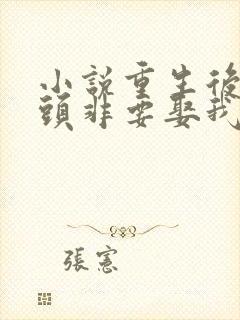 小說重生後
頭非要娶我
張憲